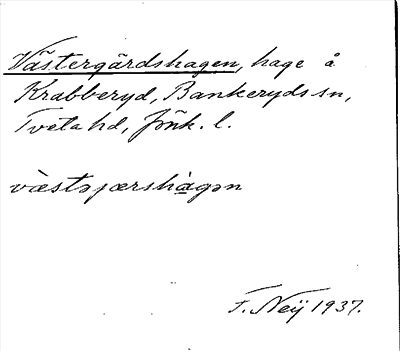 Västergärdshagen, hage å
Krabberyd, Bankeryds sn,
Tveta hd, Jönk. l.
væstəjærshàgən
F. Neij 1937.